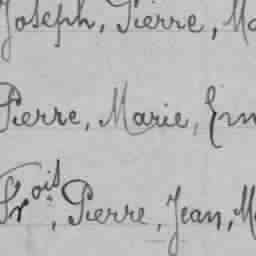 Joseph, Pierre, Ma
Pierre, Marie, Em
Frois, Pierre, Jean, M